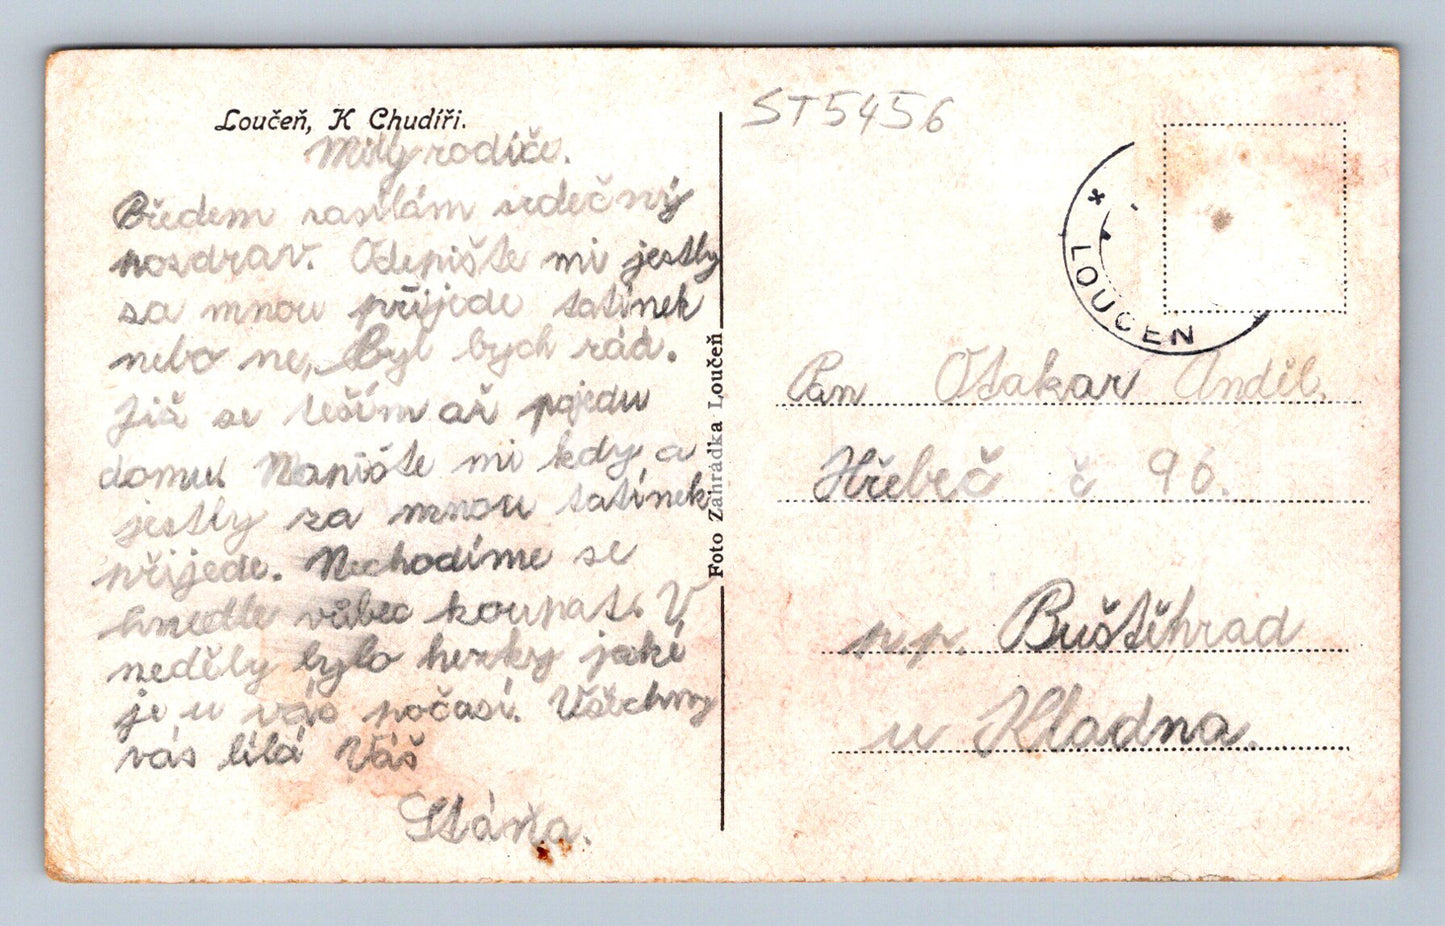 Loučeň, K Chudíři.
Milý rodiče.
Předem zasílám srdečný
pozdrav. Odepište mi jestly
za mnou přijede tatínek
nebo ne, Byl bych rád.
Již se těším až pojedu
domu. Napište mi kdy a
jestly za mnou tatínek
přijede. Nechodíme se
hnedle vůbec koupat. V
neděly bylo hezky jaké
je u vás počasí. Všechny
vás líbá Váš
Stáňa.
Foto Zahrádka Loučeň
ST5456
LOUČEŇ
Pan Otakar Anděl.
Hřebeč č 96.
p.p. Buštěhrad
u Kladna.